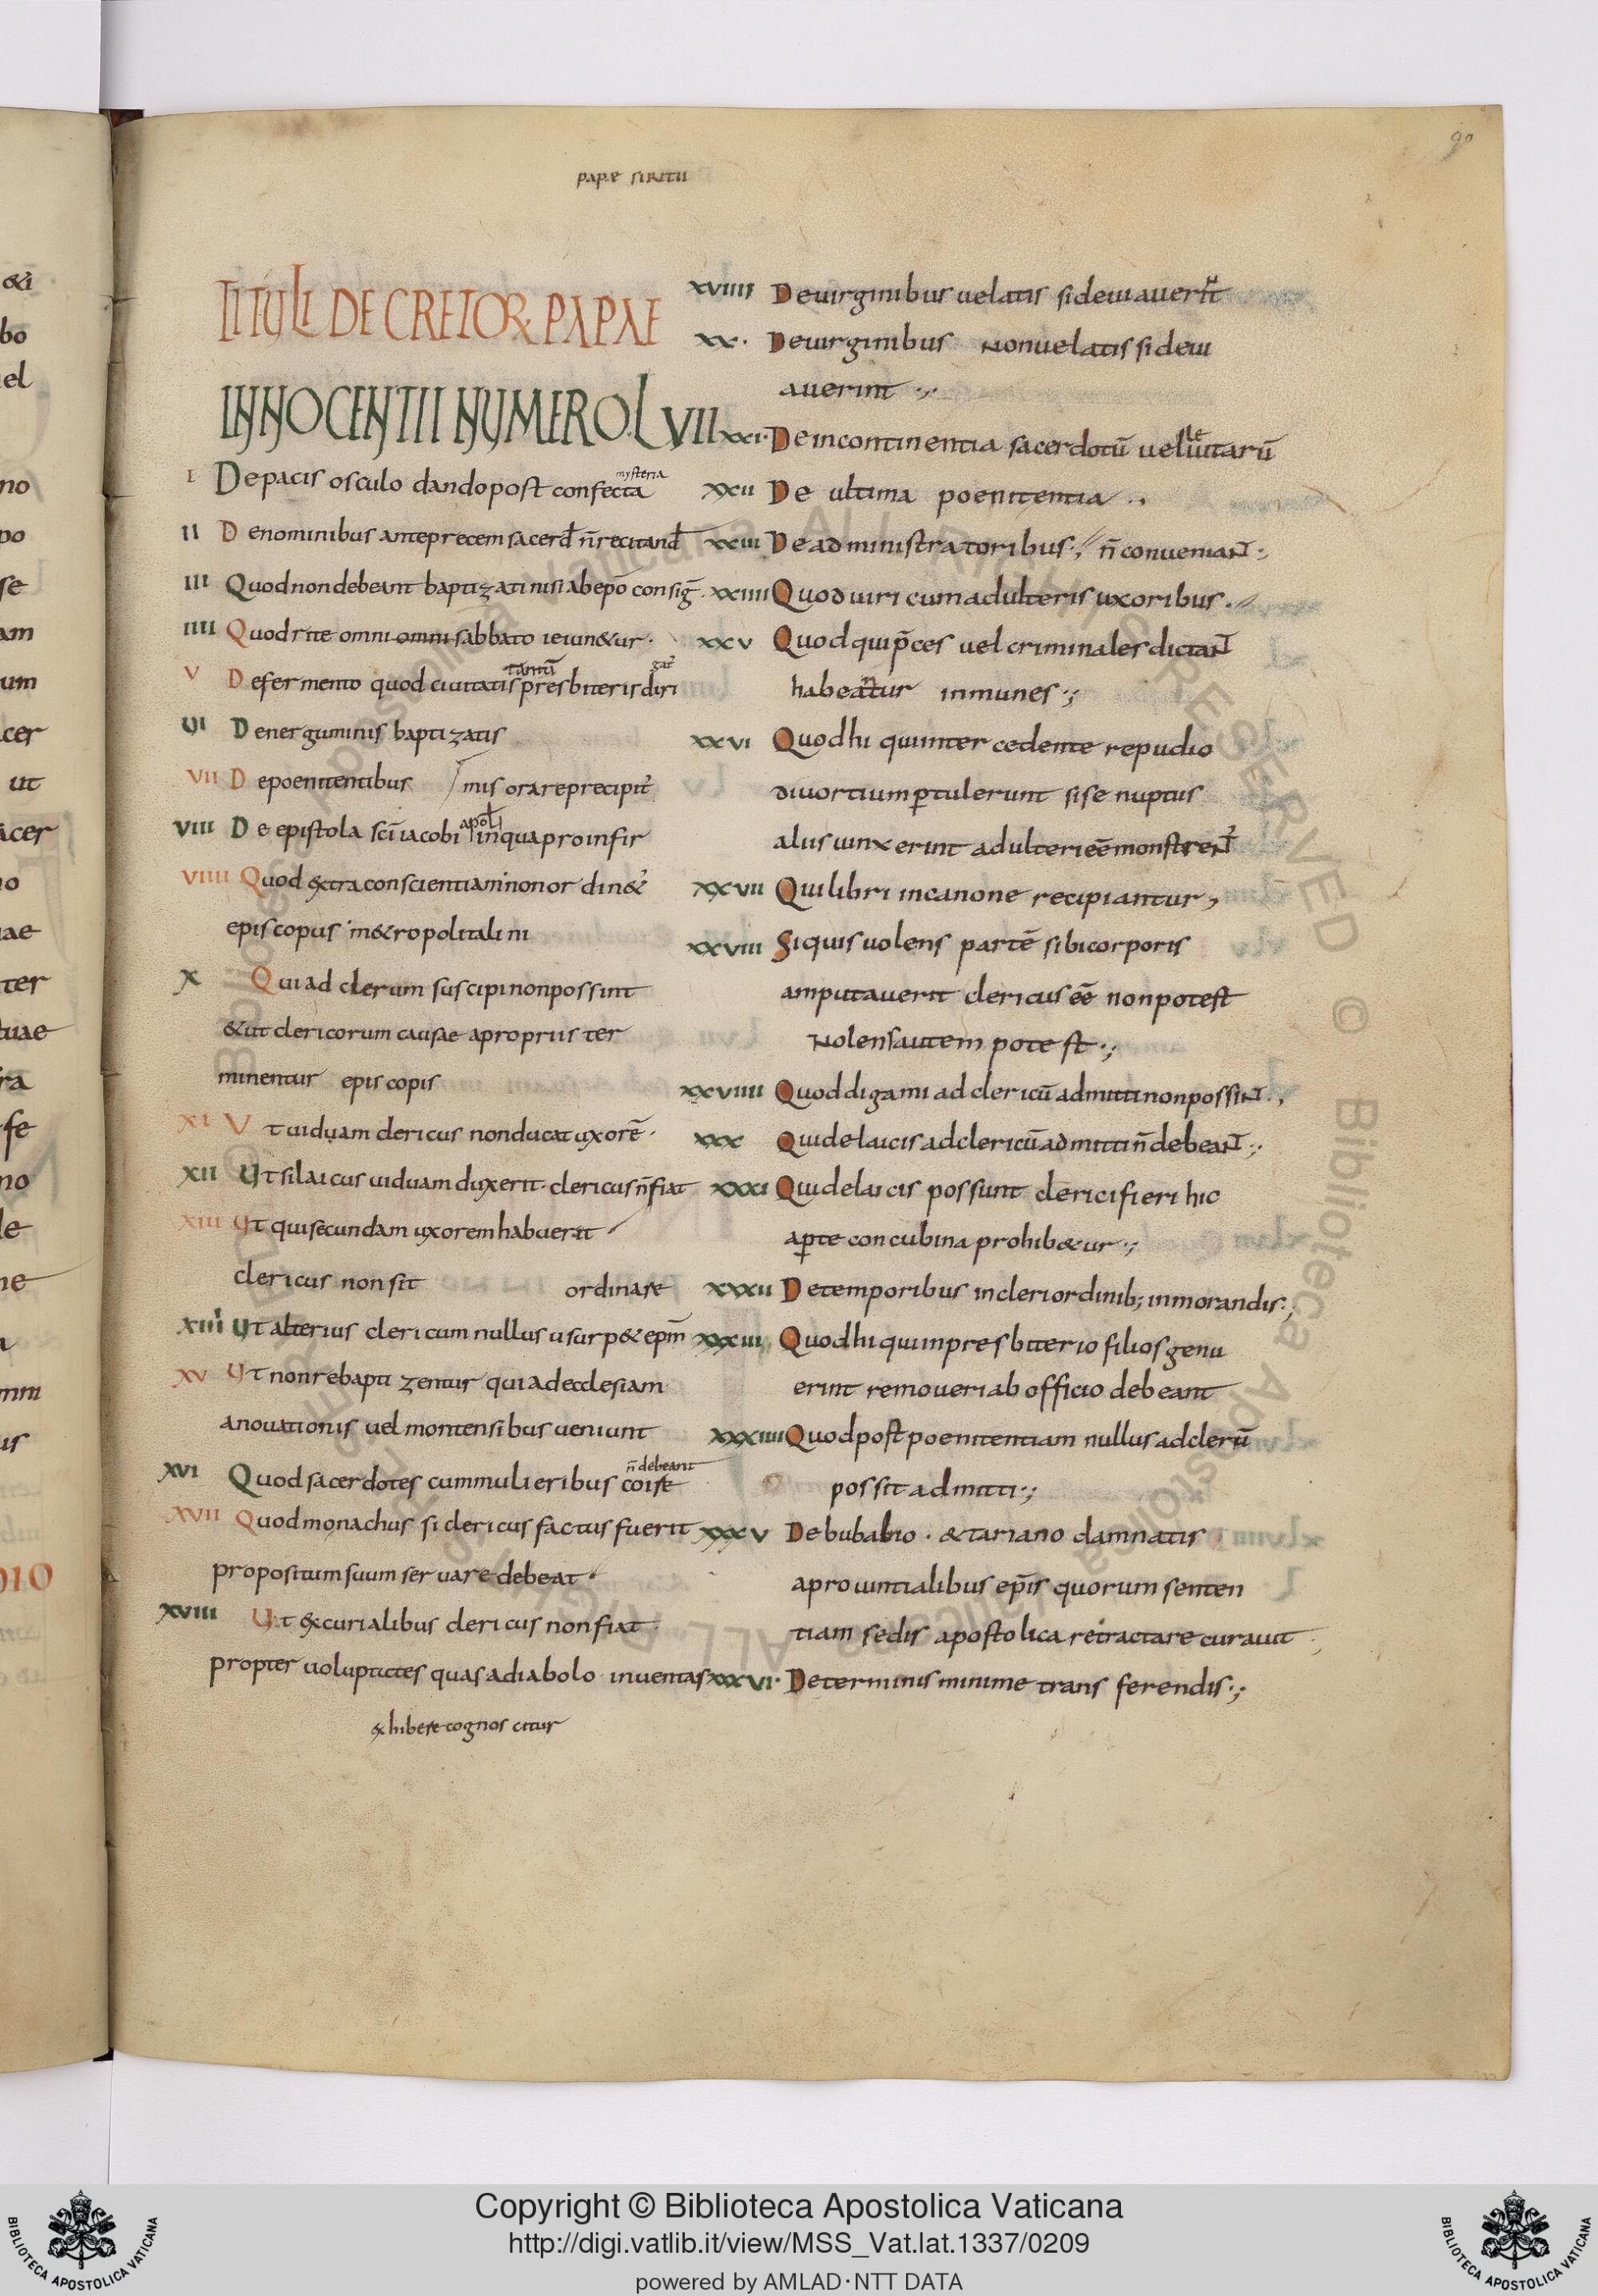 90
papae siricii
TITULI DECRETOR PAPAE
INNOCENTII NUMERO LVII
I De pacis osculo dando post confecta mysteria
II De nominibus ante precem sacerd n̄ recitand
III Quod non debeant baptizati nisi ab ep̄o consiḡ.
IIII Quod rite omni omni sabbato ieiunetur.
V De fermento quod civitatis tantū presbiteris dirigat᷑
VI De nerguminis baptizatis
VII De poenitentibus
mis orare precipit᷑
VIII De epistola sc̄i iacobi apoł in qua pro infir
VIIII Quod extra conscientiam non ordinet᷑
episcopus metropolitani
X Qui ad clerum suscipi non possint
&ut clericorum causae a propriis ter
minentur episcopis
XI Ut viduam clericus non ducat uxorē.
XII Ut si laicus viduam duxerit clericus n̄ fiat
XIII Ut qui secundam uxorem habuerit
clericus non sit
ordinare
XIIII Ut alterius clericum nullus usurp& ep̄m
XV Ut non rebaptizentur qui ad ecclesiam
a novationis vel montensibus veniunt
XVI Quod sacerdotes cum mulieribus coire n̄ debeant
XVII Quod monachus si clericus factus fuerit
propositum suum servare debeat
XVIII Ut &x curialibus clericus non fiat
propter voluptates quas a diabolo inventas
&xhibere cognoscitur
XVIIII De virginibus velatis si deviaverit
XX. De virginibus non velatis si devi
averint
XXI. De incontinentia sacerdotū vel levitarū
XXII De ultima poenitentia
XXIII De administratoribus; n̄ conveniant
XXIIII Quod viri cum adulteris uxoribus.
XXV Quod qui p̄ces vel criminales dictant
habeantur inmunes
XXVI Quod hi qui intercedente repudio
divortium ꝑtulerunt si se nuptiis
aliis vinxerint adulteri eē monstrent᷑
XXVII Qui libri in canone recipiantur
XXVIII Si quis volens partē sibi corporis
amputaverit clericus eē non potest
Nolens autem potest
XXVIIII Quod digami ad clericū admitti non possint
XXX Qui de laicis ad clericū admitti n̄ debeant
XXXI Qui de laicis possunt clerici fieri hic
aꝑte concubina prohib&ur
XXXII De temporibus in cleri ordinib; inmorandis
XXXIII Quod hi qui in presbiterio filios genu
erint removeri ab officio debeant
XXXIIII Quod post poenitentiam nullus ad clerū
possit admitti
XXXV De bubalio. & tariano damnatis
a provintialibus ep̄is quorum senten
tiam sedis apostolica retractare curavit
XXXVI. De terminis minime transferendis
Copyright © Biblioteca Apostolica Vaticana
http://digi.vatlib.it/view/MSS_Vat.lat.1337/0209
powered by AMLAD·NTT DATA
BIBLIOTECA APOSTOLICA VATICANA
BIBLIOTECA APOSTOLICA VATICANA